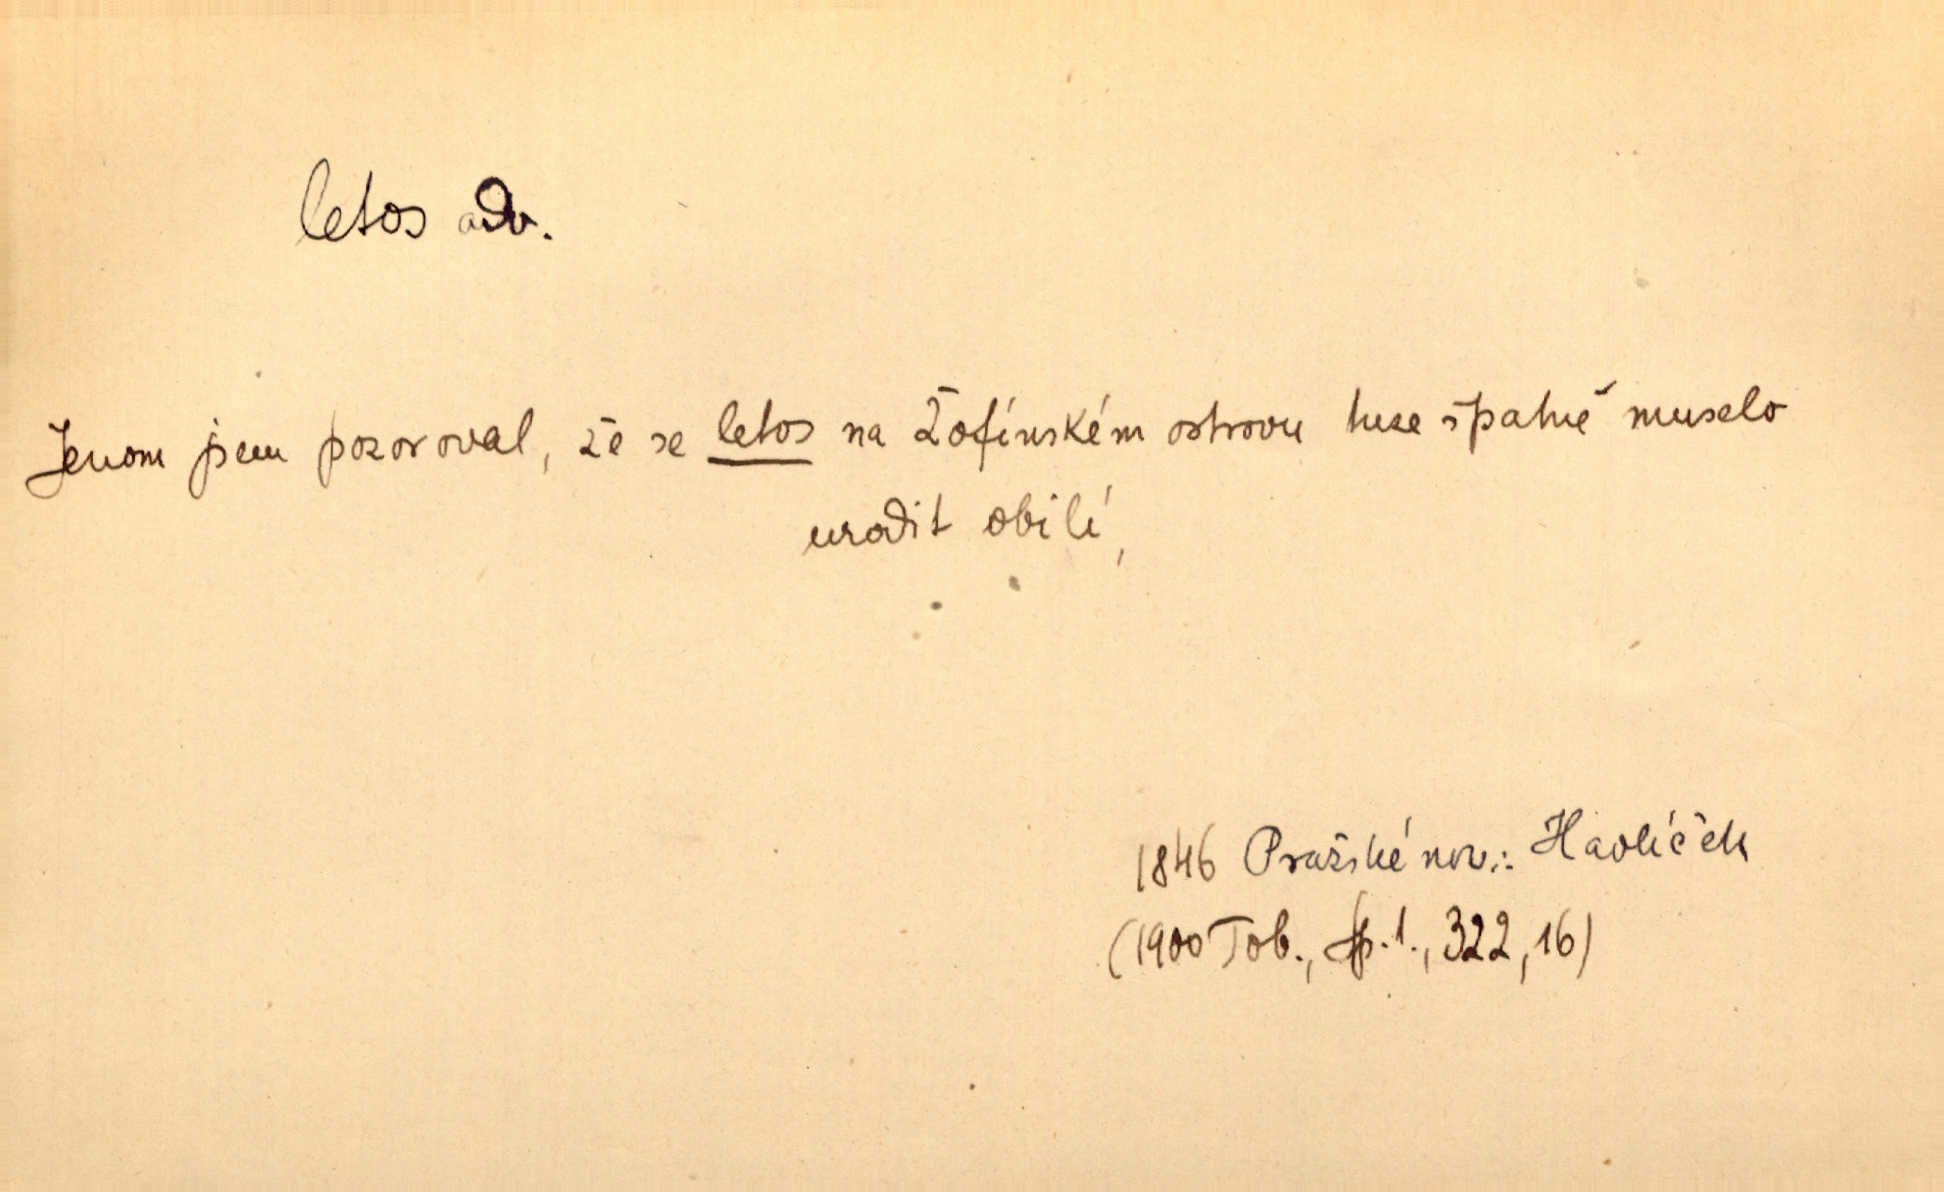 letos adv.
Jenom jsem pozoroval, že se letos na Žofínském ostrovu tuze špatně muselo
urodit obilí,
1846 Pražské nov.: Havlíček
(1900 Tob., Sp. 1., 322, 16)